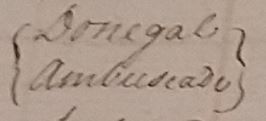 {Donegal}
{Ambuscade}